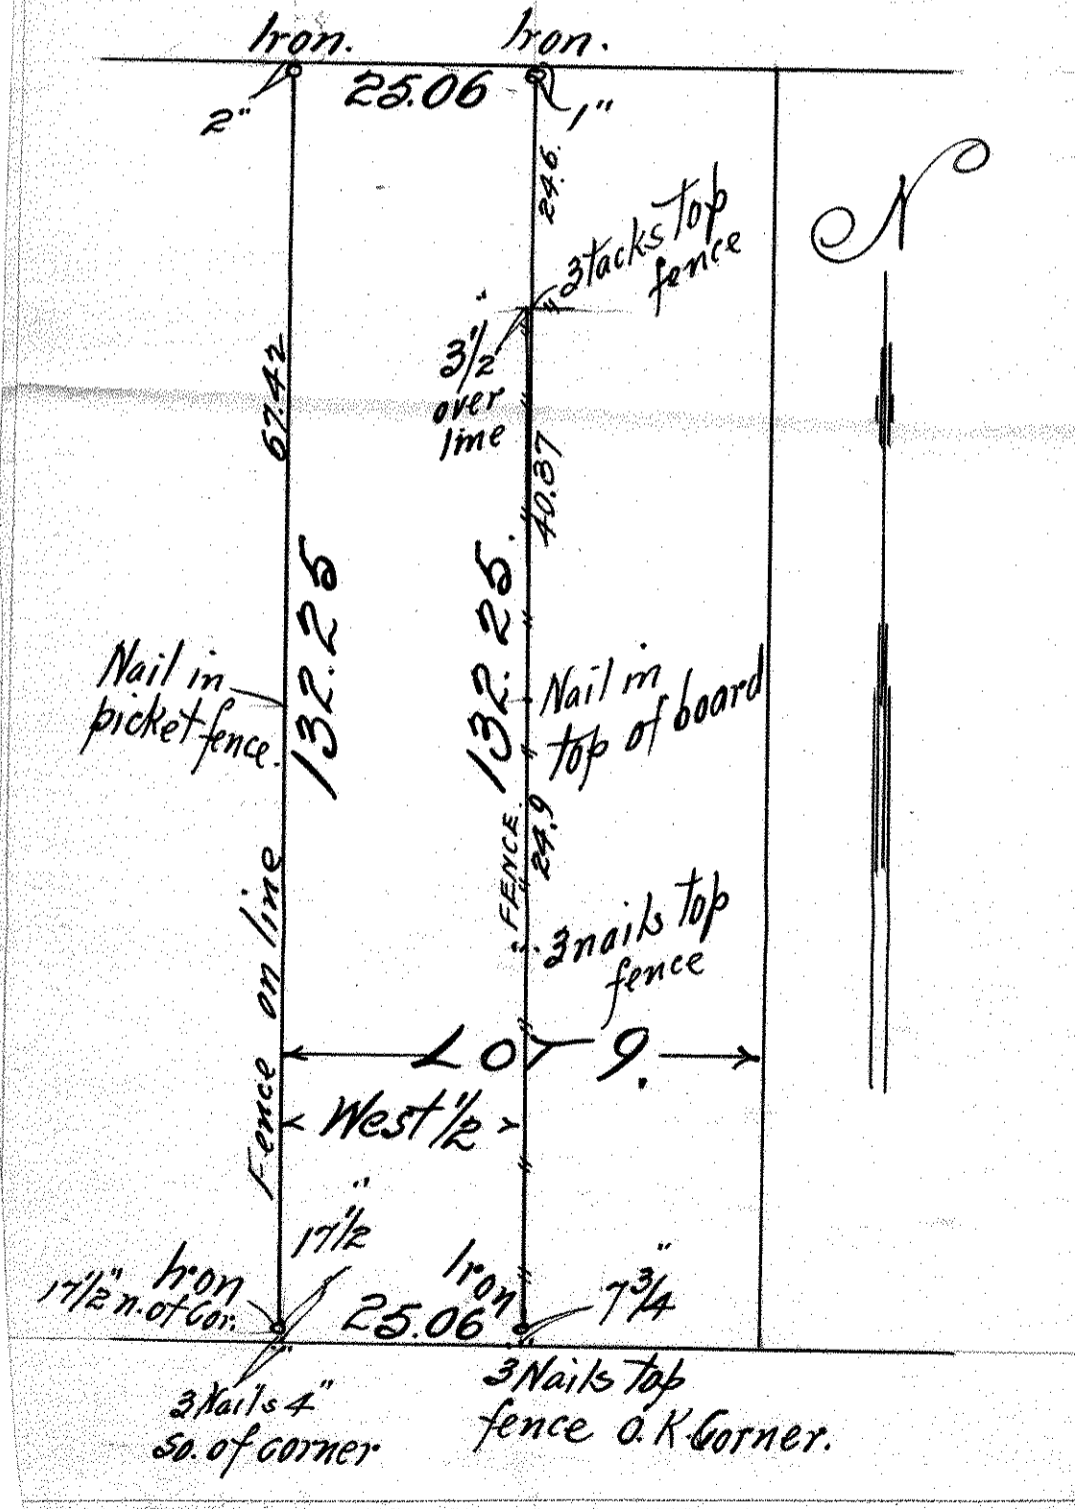 Iron.
Iron.
2"
25.06
1"
24.6.
N
3 tacks top
fence
3 1/2"
over
line
67.42
40.37
132.25
132.25.
Nail in
picket fence.
Nail in
top of board
FENCE.
24.9
3 nails top
fence
Fence on line
LOT 9.
West 1/2
17 1/2"
Iron
17 1/2" n. of Cor.
Iron
25.06
7 3/4"
3 Nails 4"
So. of corner
3 Nails top
fence O.K. Corner.